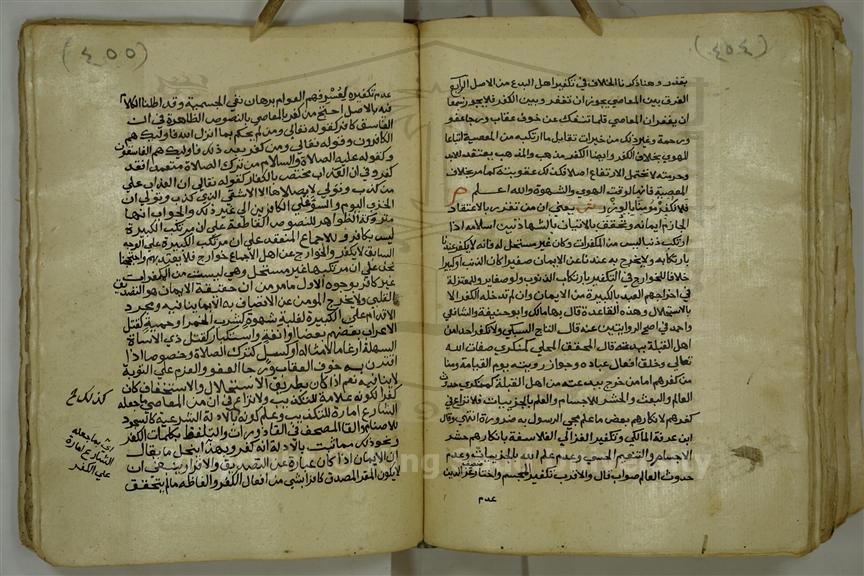 (٤٥٤)
بقدر وهنا ذكرنا الخلاف في تكفير اهل البدع من الاصل الرابع
الفرق بين المعاصي يجوز ان تغفر وبين الكفر فلا يجوز سمعا
ان يغفر ان المعاصي قلما تنفك عن خوف عقاب ورجا عفو
ورحمة وغير ذلك من خيرات تقابل ما ارتكبه من المعصية اتباعا
للهوى بخلاف الكفر وايضا الكفر مذهب والمذهب يعتقد للابد
وحرمته لا تحتمل الارتفاع اصلا فكذلك عقوبته كما مر بخلاف
المعصية فانها لوقت الهوى والشهوة والله اعلم م
فلا نكفر مؤمنا بالوزر ش يعني ان من تقرر بالاعتقاد
الجازم ايمانه وتحقق بالاتيان بالشهادتين اسلامه اذا
ارتكب ذنبا ليس من المكفرات وكان غير مستحل له فانه لا نكفره عندنا
بارتكابه ولا يخرج به عندنا عن الايمان صغيرا كان الذنب او كبيرا
خلافا للخوارج في التكفير بارتكاب الذنوب ولو صغاير وللمعتزلة
في اخراجهم العبد بالكبيرة من الايمان وان لم تدخله الكفر الا
بالاستحلال وهذه القاعدة قال بها مالك وابو حنيفة والشافعي
واحمد في اصح الروايتين عنه قال التاج السبكي ولا نكفر احدا من
اهل القبلة ببدعته قال المحقق المحلي كمنكري صفات الله
تعالى وخلق افعال عباده وجواز رويته يوم القيامة ومنا
من كفرهم اما من خرج ببدعته من اهل القبلة كمنكري حدوث
العالم والبعث والحشر للاجسام والعلم بالجزييات فلا نزاع في
كفرهم لانكارهم بعض ما علم مجي الرسول به ضرورة انتهى وقال
ابن عرفة المالكي وتكفير الغزالي الفلاسفة بانكارهم حشر
الاجسام والتنعيم الحسي وعدم علم الله بالجزييات وعدم
حدوث العالم صواب قال والاقرب تكفير مجسم واختار عز الدين
عدم
(٤٥٥)
عدم تكفيره لعسر فهم العوام برهان نفي الجسمية وقد اطلنا الكلام
فيه بالاصل احتج من كفر بالمعاصي بالنصوص الظاهرة في ان
الفاسق كافر كقوله تعالى ومن لم يحكم بما انزل الله فاولئك هم
الكافرون وقوله تعالى ومن كفر بعد ذلك فاولئك هم الفاسقون
وكقوله عليه الصلاة والسلام من ترك الصلاة متعمدا فقد
كفر وفي ان العذاب مختص بالكفار كقوله تعالى ان العذاب على
من كذب وتولى لا يصلاها الا الاشقى الذي كذب وتولى ان
الخزي اليوم والسوء على الكافرين الى غير ذلك والجواب انها
متروكة الظواهر للنصوص القاطعة على ان مرتكب الكبيرة
ليس بكافر وللاجماع المنعقد على ان مرتكب الكبيرة على الوجه
السابق لا يكفر والخوارج عن اهل الاجماع خوارج فلا يعتد بهم واحتججنا
نحن على ان مرتكبها غير مستحل وهي ليست من المكفرات
غير كافر بوجوه الاول ما مر من ان حقيقة الايمان هو التصديق
القلبي ولا يخرج المومن عن الاتصاف به الا بما ينافيه ومجرد
الاقدام على الكبيرة لغلبة شهوة كشرب الخمر او حمية كقتل
الاعراب بعضهم بعضا او انفة واستكبار كقتل ذي الاساة
السهلة ارغاما لامثاله او كسل كترك الصلاة وخصوصا اذا
اقترن به خوف العقاب ورجا العفو والعزم على التوبة
لا ينافيه نعم اذا كان بطريق الاستحلال والاستخفاف كان
كفرا لكونه علامة للتكذيب ولا نزاع في ان من المعاصي ما جعله
الشارع امارة للتكذيب وعلم كونه بالادلة الشرعية كالسجود
للاصنام والقا المصحف في القاذورات والتلفظ بكلمات الكفر
ونحو ذلك مما ثبت بالادلة انه كفر وبهذا ينحل ما يقال
ان الايمان اذا كان عبارة عن التصديق والاقرار ينبغي ان
لا يكون المقر المصدق كافرا بشي من افعال الكفر والفاظه ما لم يتحقق
كذلك صح
اي بما جعله
الشارع امارة
على الكفر